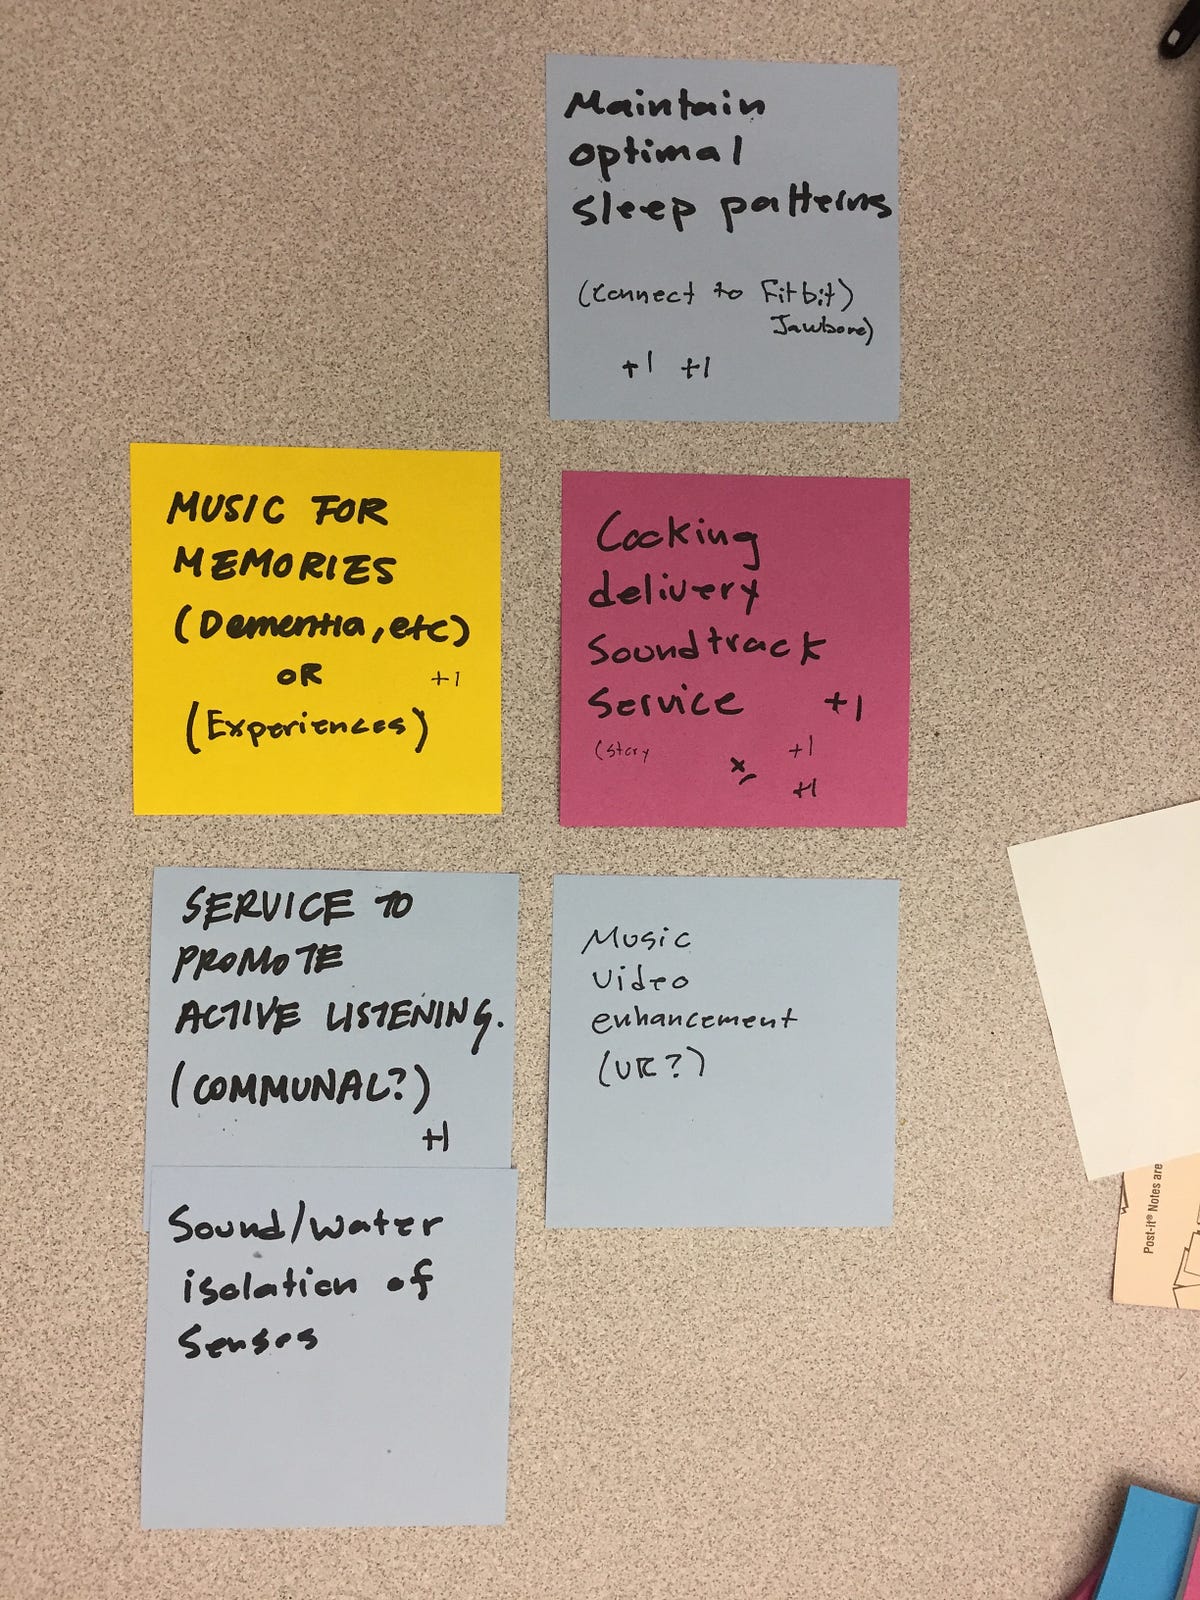 Maintain
optimal
sleep patterns
(connect to Fitbit)
Jawbone)
+1 +1
MUSIC FOR
MEMORIES
(Dementia, etc)
OR +1
(Experiences)
Cooking
delivery
Soundtrack
Service +1
(story +1
+1
SERVICE TO
PROMOTE
ACTIVE LISTENING.
(COMMUNAL?)
+1
Music
Video
enhancement
(VR?)
Sound/water
isolation of
Senses
Post-it® Notes are